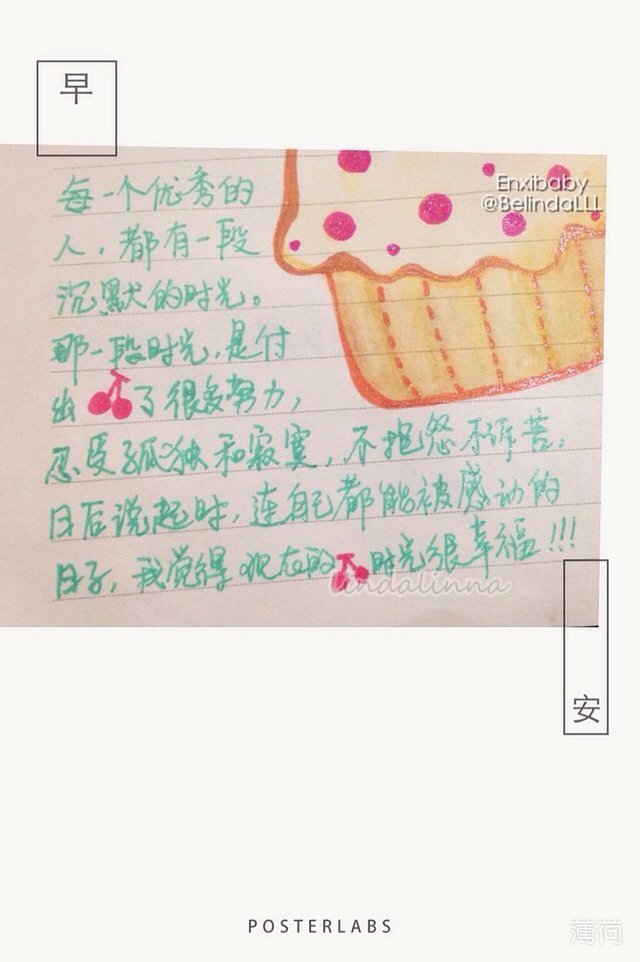 早
每一个优秀的
Enxibaby
@BelindaLLL
人，都有一段
沉默的时光。
那一段时光，是付
出了很多努力，
忍受孤独和寂寞，不抱怨不诉苦。
日后说起时，连自己都能被感动的
日子，我觉得现在的时光很幸福!!!
lindalinna
安
POSTERLABS
薄荷